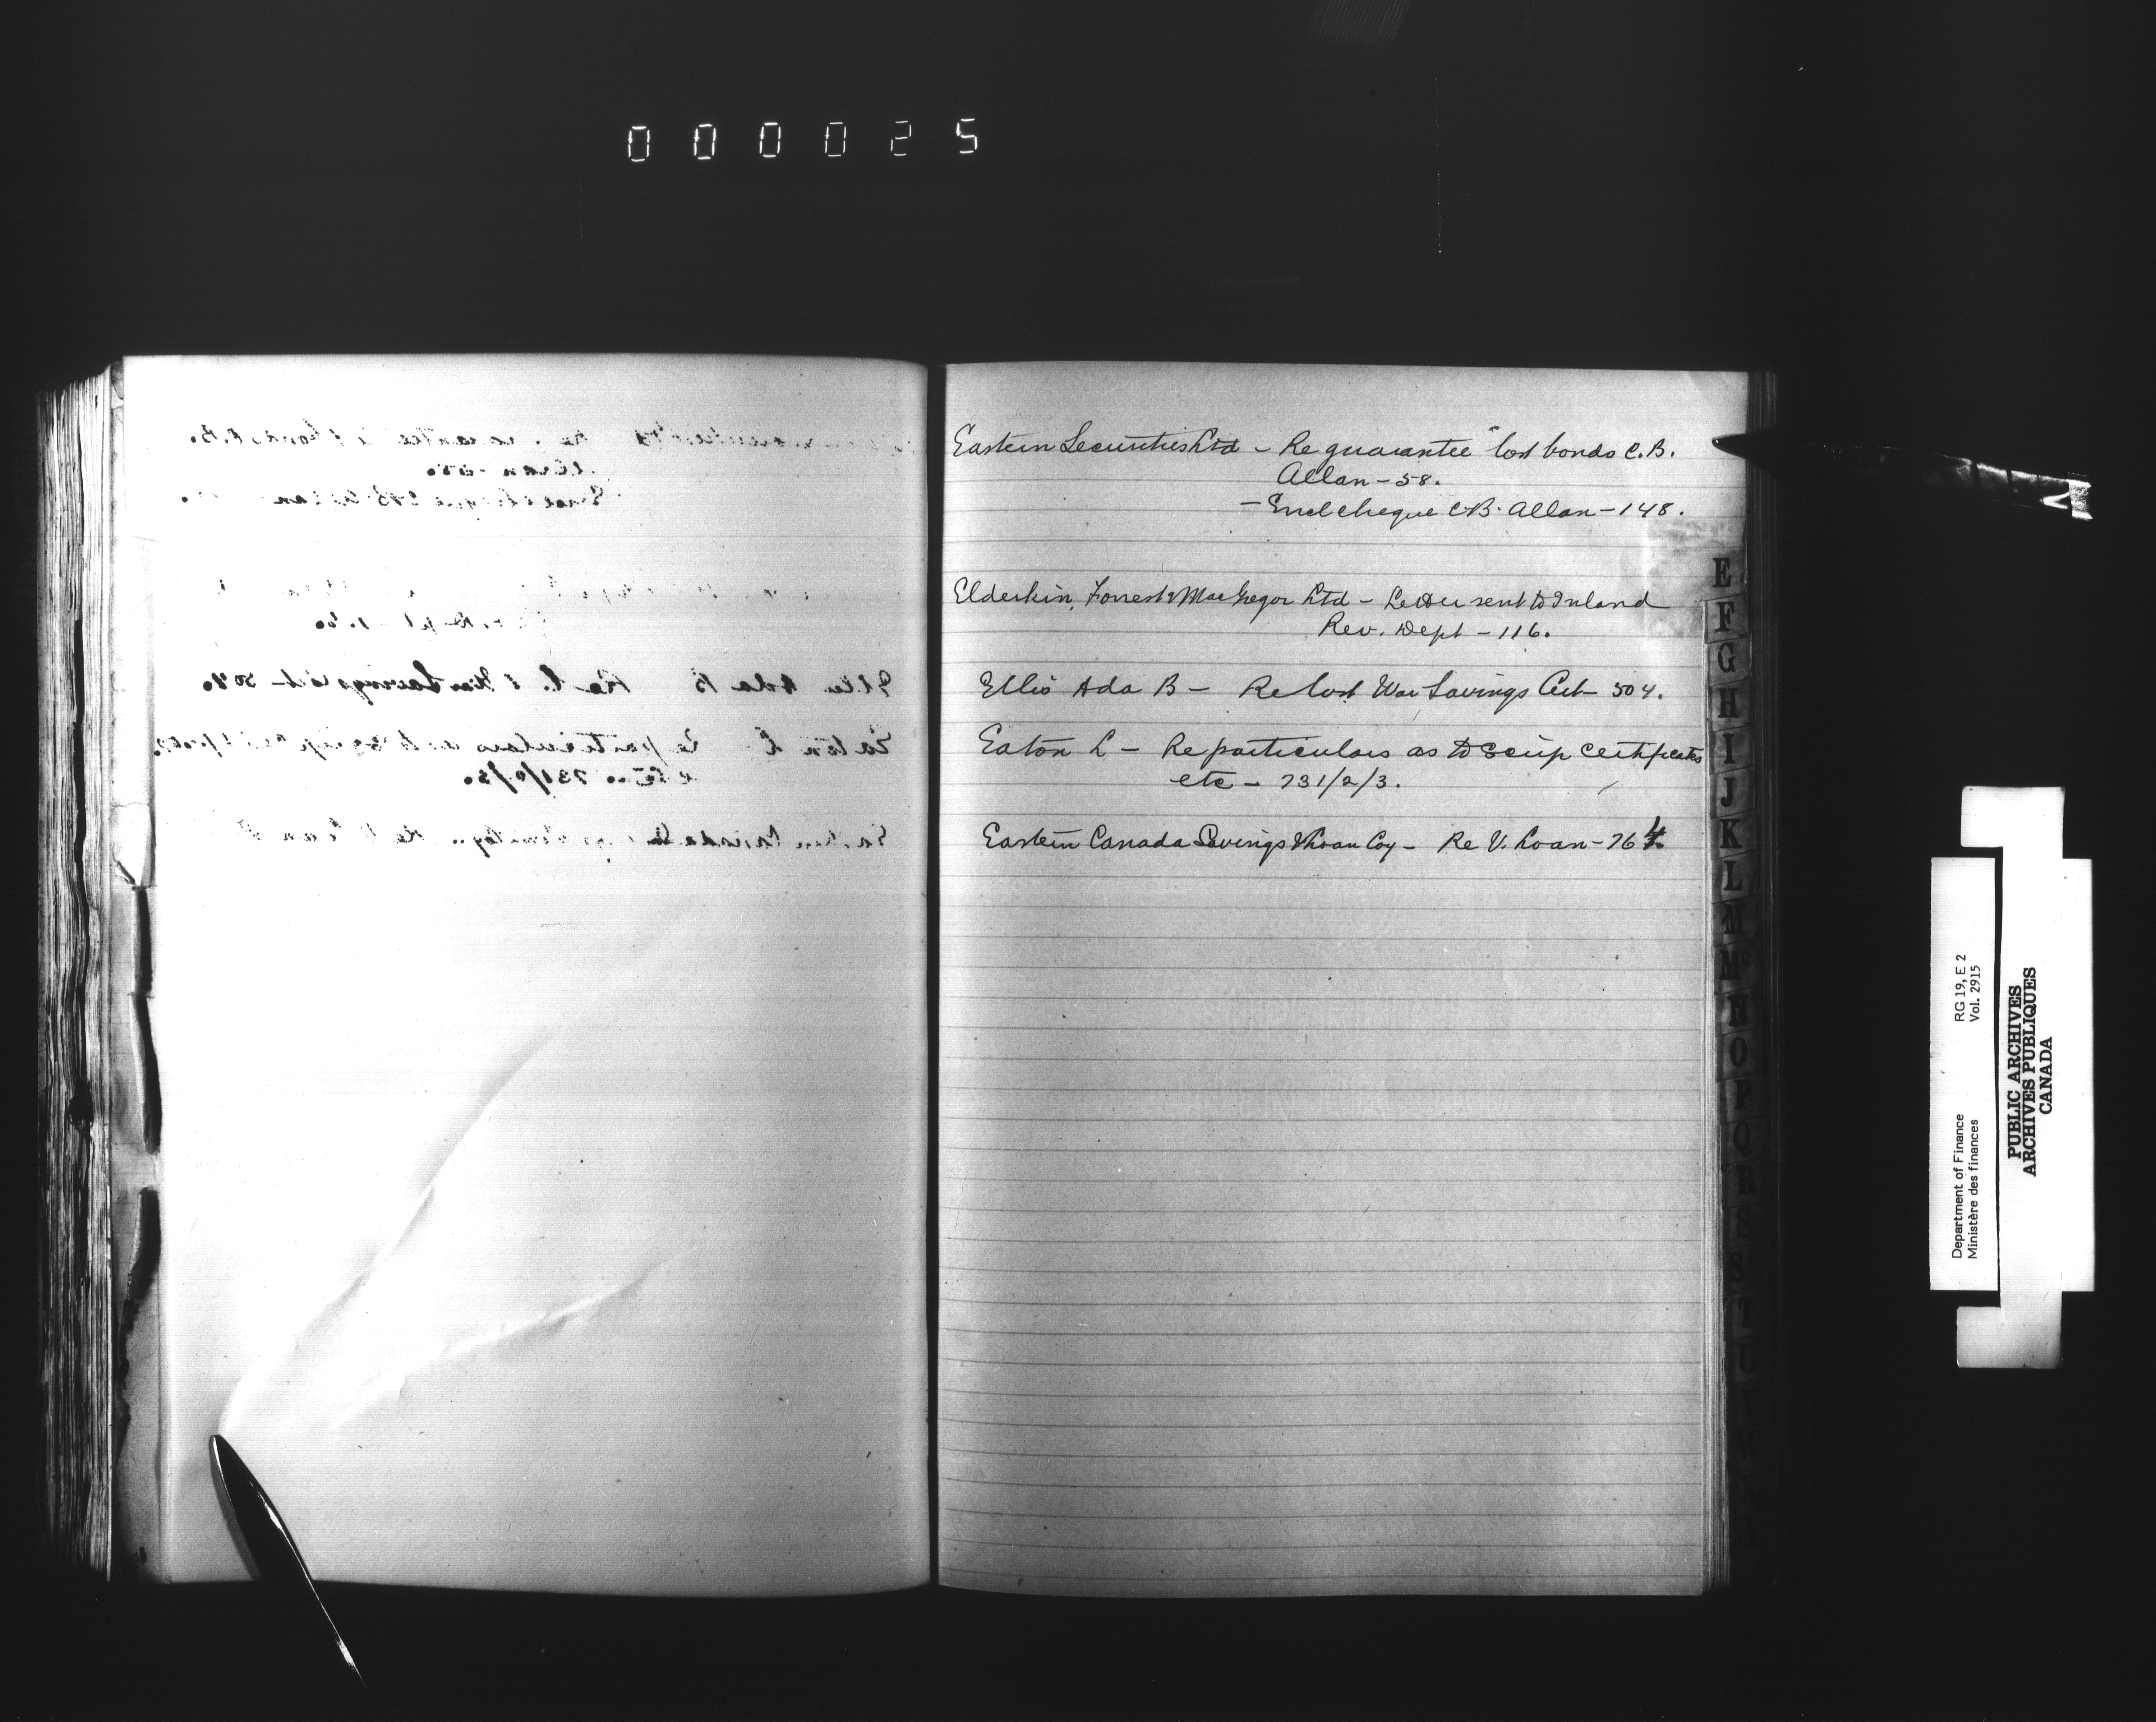 000025
Eastern Securities Ltd - Re guarantee lost bonds C.B.
Allan - 58.
- Encl cheque C.B. Allan - 148.
Elderkin, Forrest & MacGregor Ltd - Letter sent to Inland
Rev. Dept - 116.
Ellis Ada B - Re lost War Savings Cert - 504.
Eaton L - Re particulars as to Scrip Certificates
etc - 731/2/3.
Eastern Canada Savings & Loan Coy - Re V. Loan - 764
E
F
G
H
I
J
K
L
M
Mc
N
O
P
Q
R
S
T
U
W
Department of Finance
Ministère des finances
RG 19, E 2
Vol. 2915
PUBLIC ARCHIVES
ARCHIVES PUBLIQUES
CANADA